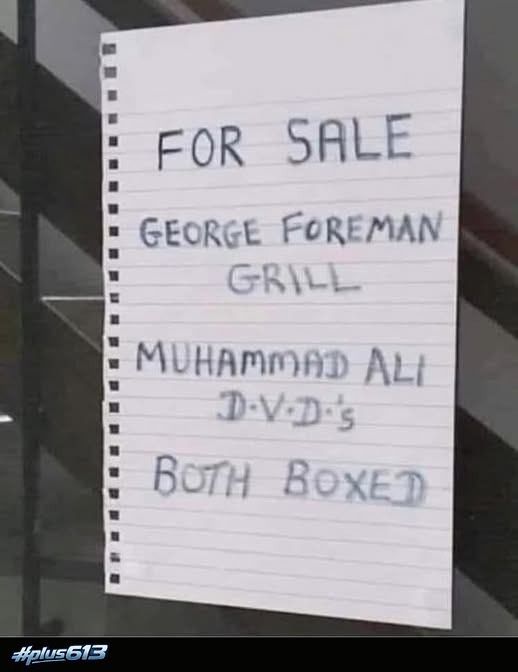 FOR SALE
GEORGE FOREMAN
GRILL
MUHAMMAD ALI
D.V.D.'s
BOTH BOXED
#plus613